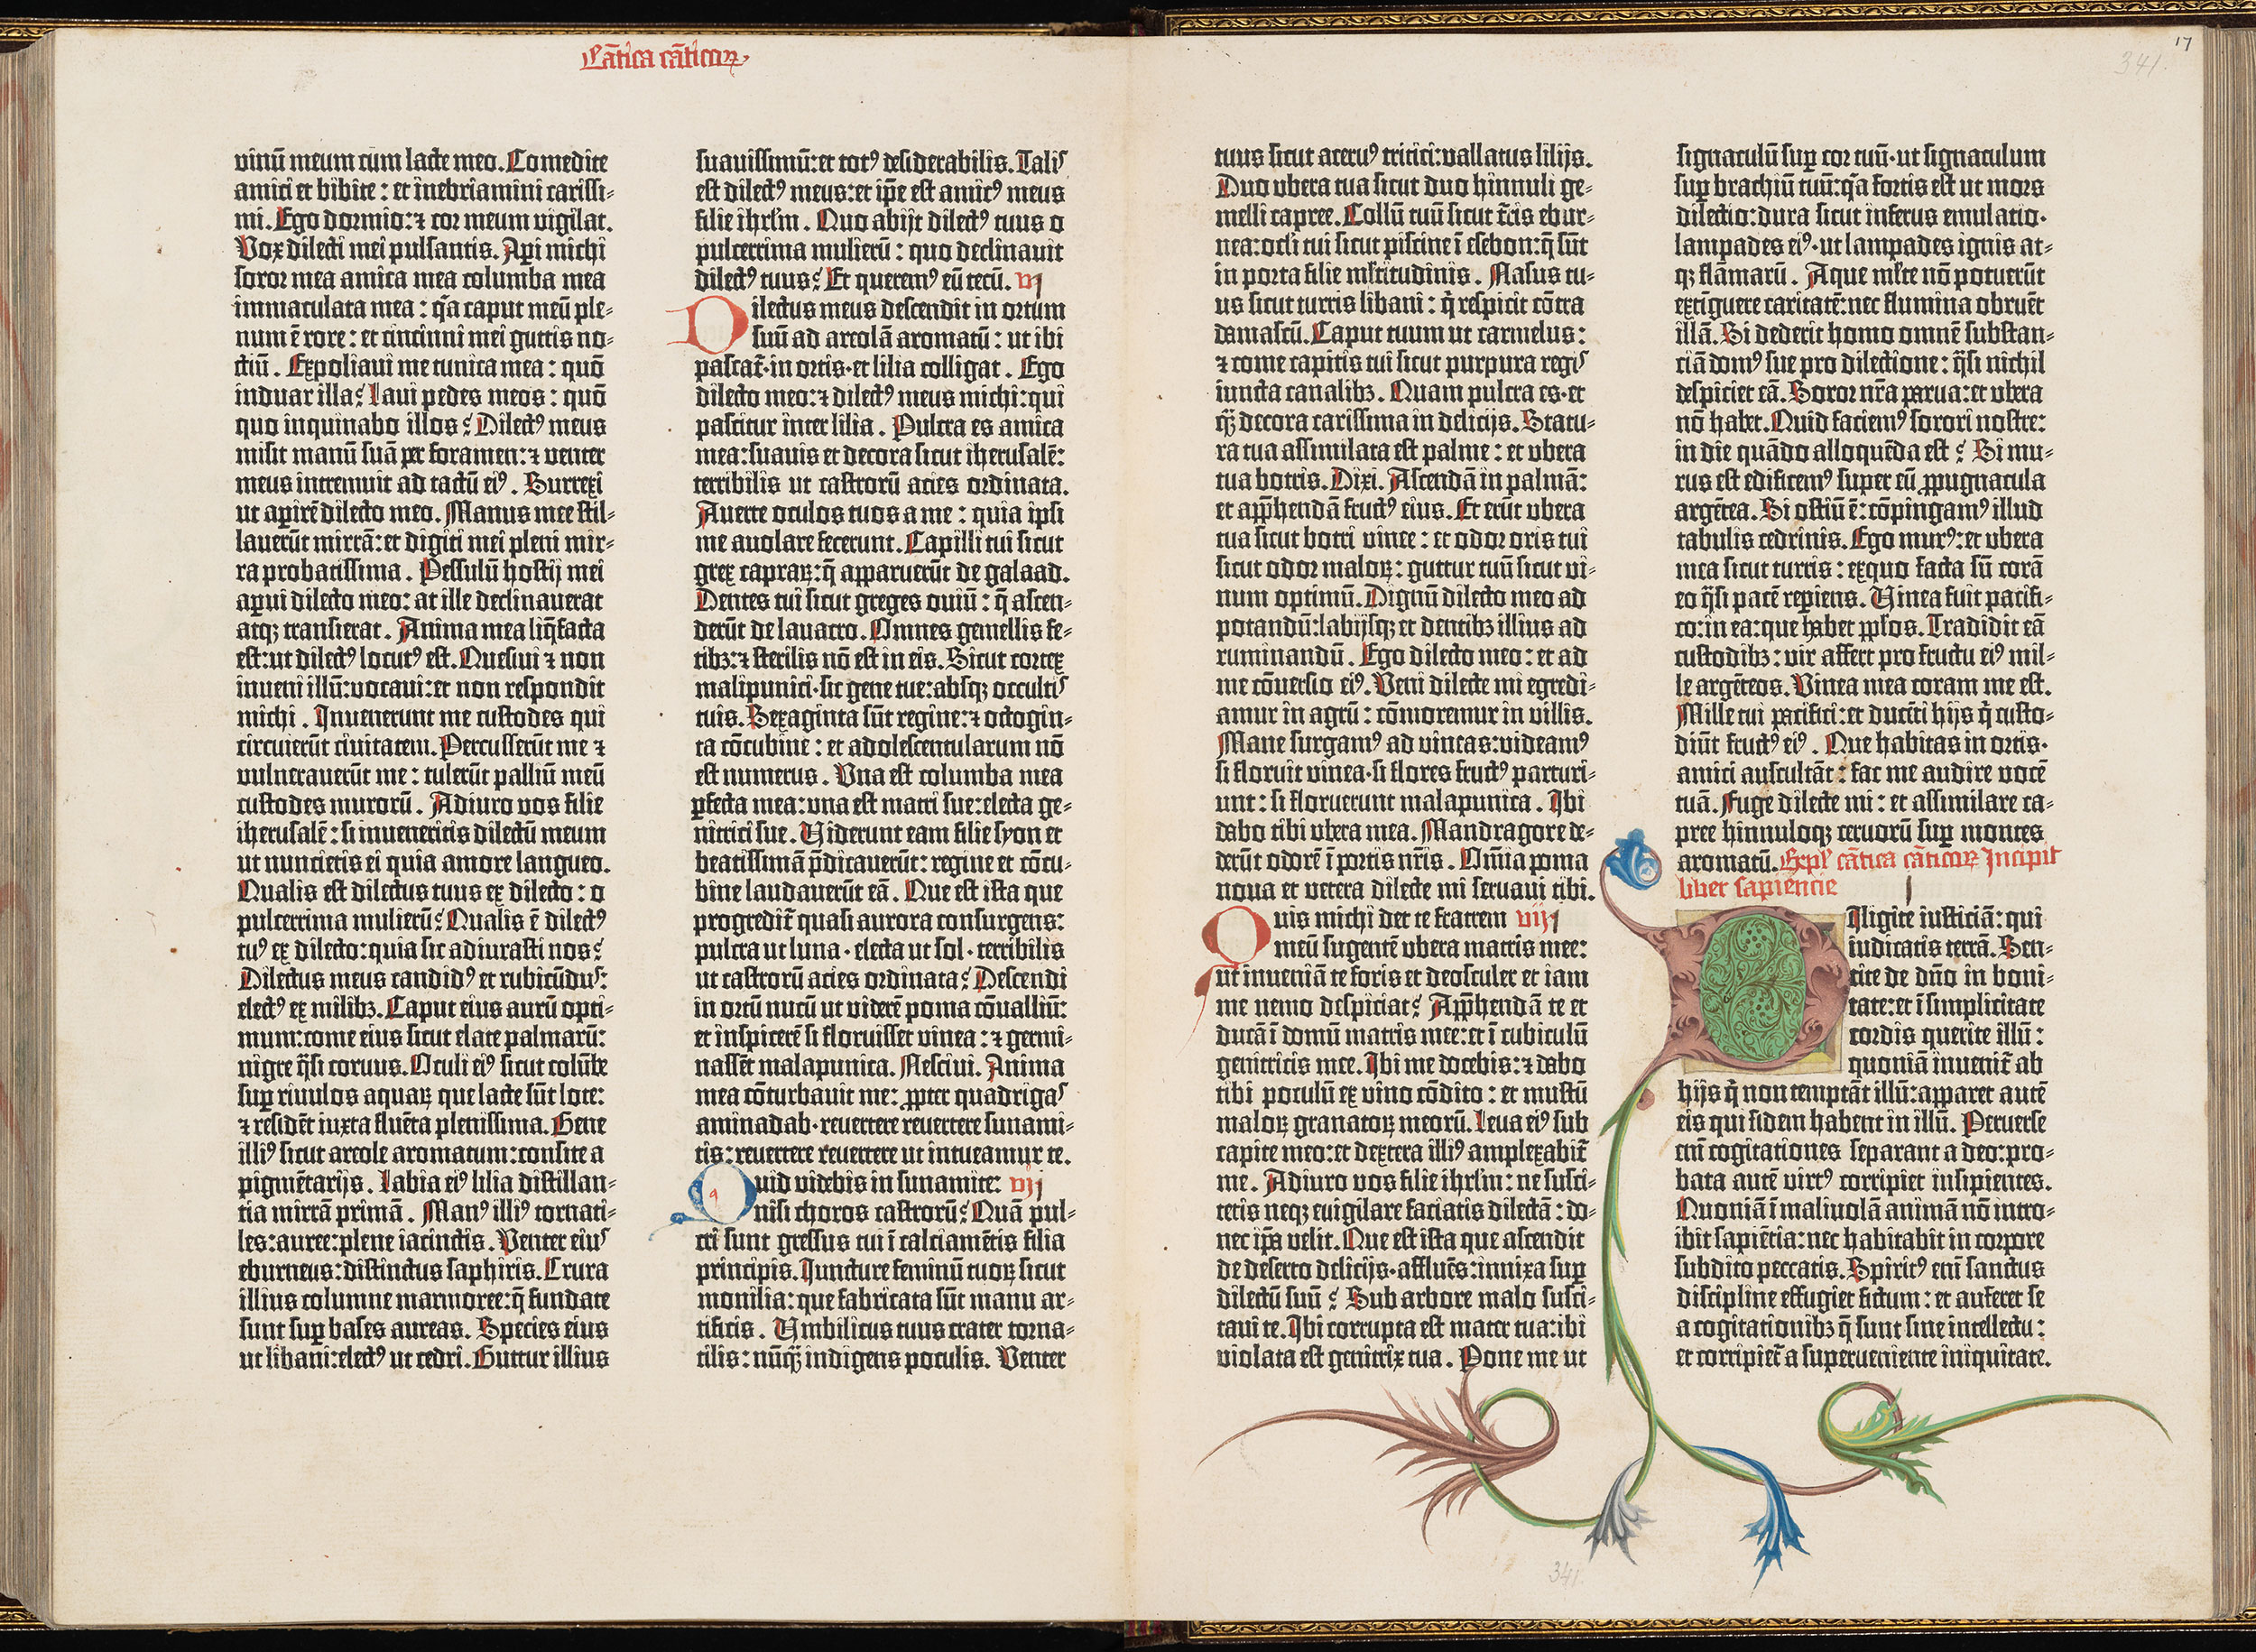 Cãtica cãticoꝝ
vinũ meum cum lacte meo. Comedite
amici et bibite: et inebriamini carissi-
mi. Ego dormio: ⁊ cor meum vigilat.
Vox dilecti mei pulsantis. Aꝑi michi
soror mea amica mea columba mea
immaculata mea: q̃a caput meũ ple-
num ẽ rore: et cincinni mei guttis no-
ctiũ. Expoliaui me tunica mea: quõ
induar illa? Laui pedes meos: quõ
quo inquinabo illos? Dilectꝰ meus
misit manũ suã ꝑ foramen: ⁊ venter
meus intremuit ad tactũ eiꝰ. Surrexi
ut aꝑirẽ dilecto meo. Manus mee stil-
lauerũt mirrã: et digiti mei pleni mir-
ra probatissima. Pessulũ hostij mei
aꝑui dilecto meo: at ille declinauerat
atqꝫ transierat. Anima mea liq̃facta
est: ut dilectꝰ locutꝰ est. Quesiui ⁊ non
inueni illũ: vocaui: et non respondit
michi. Inuenerunt me custodes qui
circuierũt ciuitatem. Percusserũt me ⁊
vulnerauerũt me: tulerũt palliũ meũ
custodes murorũ. Adiuro vos filie
iherusalẽ: si inueneritis dilectũ meum
ut nuncietis ei quia amore langueo.
Qualis est dilectus tuus ex dilecto: o
pulcerrima mulierũ? Qualis ẽ dilectꝰ
tuꝰ ex dilecto: quia sic adiurasti nos?
Dilectus meus candidꝰ et rubicũdus:
electꝰ ex milibꝫ. Caput eius aurũ opti-
mum: come eius sicut elate palmarũ:
nigre q̃si coruus. Oculi eiꝰ sicut colũbe
suꝑ riuulos aquaꝝ que lacte sũt lote:
⁊ residẽt iuxta fluẽta plenissima. Gene
illiꝰ sicut areole aromatum: consite a
pigmẽtarijs. Labia eiꝰ lilia distillan-
tia mirrã primã. Manꝰ illiꝰ tornati-
les: auree: plene iacinctis. Venter eius
eburneus: distinctus saphiris. Crura
illius columne marmoree: q̃ fundate
sunt suꝑ bases aureas. Species eius
ut libani: electꝰ ut cedri. Guttur illius
suauissimũ: et totꝰ desiderabilis. Talis
est dilectꝰ meus: et ip̃e est amicꝰ meus
filie ihrl̃m. Quo abijt dilectꝰ tuus o
pulcerrima mulierũ: quo declinauit
dilectꝰ tuus? Et queremꝰ eũ tecũ. vj
Dilectus meus descendit in ortum
suũ ad areolã aromatũ: ut ibi
pascat̃ in ortis·et lilia colligat. Ego
dilecto meo: ⁊ dilectꝰ meus michi: qui
pascitur inter lilia. Pulcra es amica
mea: suauis et decora sicut iherusalẽ:
terribilis ut castrorũ acies ordinata.
Auerte oculos tuos a me: quia ipsi
me auolare fecerunt. Capilli tui sicut
grex capraꝝ: q̃ apparuerũt de galaad.
Dentes tui sicut greges ouiũ: q̃ ascen-
derũt de lauacro. Omnes gemellis fe-
tibꝫ: ⁊ sterilis nõ est in eis. Sicut cortex
malipunici·sic gene tue: absqꝫ occultis
tuis. Sexaginta sũt regine: ⁊ octogin-
ta cõcubine: et adolescentularum nõ
est numerus. Vna est columba mea
ꝑfecta mea: vna est matri sue: electa ge-
nitrici sue. Viderunt eam filie syon et
beatissimã p̃dicauerũt: regine et cõcu-
bine laudauerũt eã. Que est ista que
progredit̃ quasi aurora consurgens:
pulcra ut luna·electa ut sol·terribilis
ut castrorũ acies ordinata? Descendi
in ortũ nucũ ut viderẽ poma cõualliũ:
et inspicerẽ si floruisset vinea: ⁊ germi-
nassẽt malapunica. Nesciui. Anima
mea cõturbauit me: ꝓpter quadrigas
aminadab·reuertere reuertere sunami-
tis: reuertere reuertere ut intueamur te.
Quid videbis in sunamite: vij
nisi choros castrorũ? Quã pul-
cri sunt gressus tui ĩ calciamẽtis filia
principis. Iuncture feminũ tuoꝝ sicut
monilia: que fabricata sũt manu ar-
tificis. Vmbilicus tuus crater torna-
tilis: nũq̃ꝫ indigens poculis. Venter
17
341
tuus sicut aceruꝰ tritici: vallatus lilijs.
Duo vbera tua sicut duo hinnuli ge-
melli capree. Collũ tuũ sicut t̃ris ebur-
nea: oc̃li tui sicut piscine ĩ esebon: q̃ sũt
in porta filie ml̃titudinis. Nasus tu-
us sicut turris libani: q̃ respicit cõtra
damascũ. Caput tuum ut carmelus:
⁊ come capitis tui sicut purpura regis
iuncta canalibꝫ. Quam pulcra es·et
q̃ꝫ decora carissima in delicijs. Statu-
ra tua assimilata est palme: et vbera
tua botris. Dixi. Ascendã in palmã:
et app̃hendã fructꝰ eius. Et erũt vbera
tua sicut botri vinee: et odor oris tui
sicut odor maloꝝ: guttur tuũ sicut vi-
num optimũ. Dignũ dilecto meo ad
potandũ: labijsqꝫ et dentibꝫ illius ad
ruminandũ. Ego dilecto meo: et ad
me cõuersio eiꝰ. Veni dilecte mi egredi-
amur in agrũ: cõmoremur in villis.
Mane surgamꝰ ad vineas: videamꝰ
si floruit vinea·si flores fructꝰ parturi-
unt: si floruerunt malapunica. Ibi
dabo tibi vbera mea. Mandragore de-
derũt odorẽ ĩ portis nr̃is. Om̃ia poma
noua et vetera dilecte mi seruaui tibi.
Quis michi det te fratrem viij
meũ sugentẽ vbera matris mee:
ut inueniã te foris et deosculer et iam
me nemo despiciat? App̃hendã te et
ducã ĩ domũ matris mee: et ĩ cubiculũ
genitricis mee. Ibi me docebis: ⁊ dabo
tibi poculũ ex vino cõdito: et mustũ
maloꝝ granatoꝝ meorũ. Leua eiꝰ sub
capite meo: et dextera illiꝰ amplexabit̃
me. Adiuro vos filie ihrl̃m: ne susci-
tetis neqꝫ euigilare faciatis dilectã: do-
nec ip̃a velit. Que est ista que ascendit
de deserto delicijs·affluẽs: innixa suꝑ
dilectũ suũ? Sub arbore malo susci-
taui te. Ibi corrupta est mater tua: ibi
violata est genitrix tua. Pone me ut
signaculũ suꝑ cor tuũ·ut signaculum
suꝑ brachiũ tuũ: q̃a fortis est ut mors
dilectio: dura sicut inferus emulatio·
lampades eiꝰ·ut lampades ignis at-
qꝫ flãmarũ. Aque ml̃te nõ potuerũt
extĩguere caritatẽ: nec flumina obruẽt
illã. Si dederit homo omnẽ substan-
ciã domꝰ sue pro dilectione: q̃si nichil
despiciet eã. Soror nr̃a parua: et vbera
nõ habet. Quid faciemꝰ sorori nostre:
in die quãdo alloquẽda est? Si mu-
rus est edificemꝰ super eũ ꝓpugnacula
argẽtea. Si ostiũ ẽ: cõpingamꝰ illud
tabulis cedrinis. Ego murꝰ: et vbera
mea sicut turris: exquo facta sũ corã
eo q̃si pacẽ reꝑiens. Vinea fuit pacifi-
co: in ea: que habet ꝓplos. Tradidit eã
custodibꝫ: vir affert pro fructu eiꝰ mil-
le argẽteos. Vinea mea coram me est.
Mille tui pacifici: et ducẽti hijs q̃ custo-
diũt fructꝰ eiꝰ. Que habitas in ortis·
amici auscultãt: fac me audire vocẽ
tuã. Fuge dilecte mi: et assimilare ca-
pree hinnuloqꝫ ceruorũ suꝑ montes
aromatũ. Expl' cãtica cãticoꝝ Incipit
liber sapiencie I
Diligite iusticiã: qui
iudicatis terrã. Sen-
tite de dño in boni-
tate: et ĩ simplicitate
cordis querite illũ:
quoniã inuenit̃ ab
hijs q̃ non temptãt illũ: apparet autẽ
eis qui fidem habent in illũ. Peruerse
em̃ cogitationes separant a deo: pro-
bata autẽ virtꝰ corripiet insipientes.
Quoniã ĩ maliuolã animã nõ intro-
ibit sapiẽtia: nec habitabit in corpore
subdito peccatis. Spiritꝰ em̃ sanctus
discipline effugiet fictum: et auferet se
a cogitationibꝫ q̃ sunt sine intellectu:
et corripiet̃ a superueniente iniquitate.
341